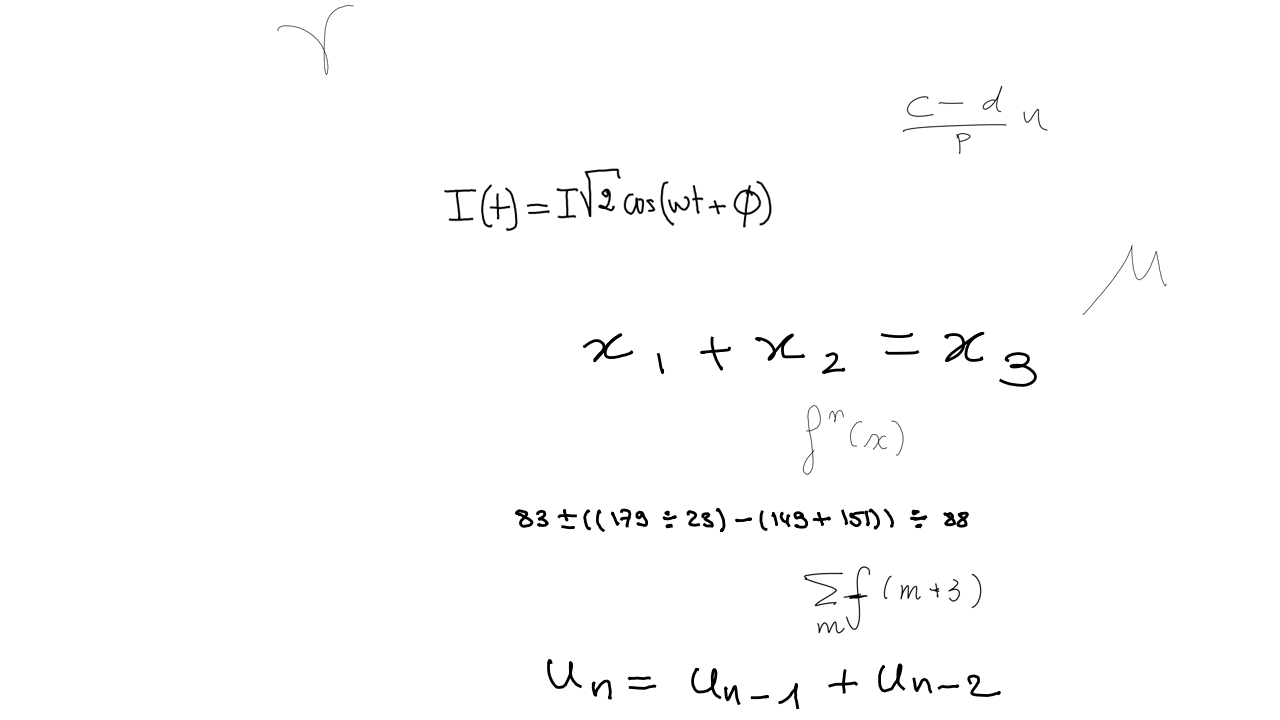 γ
\frac{c-d}{p} u
I(t) = I\sqrt{2} cos(wt + ϕ)
μ
x_1 + x_2 = x_3
f^n(x)
83 ± ((179 ÷ 28) - (149 + 151)) ÷ 88
\sum_m f(m+3)
u_n = u_{n-1} + u_{n-2}